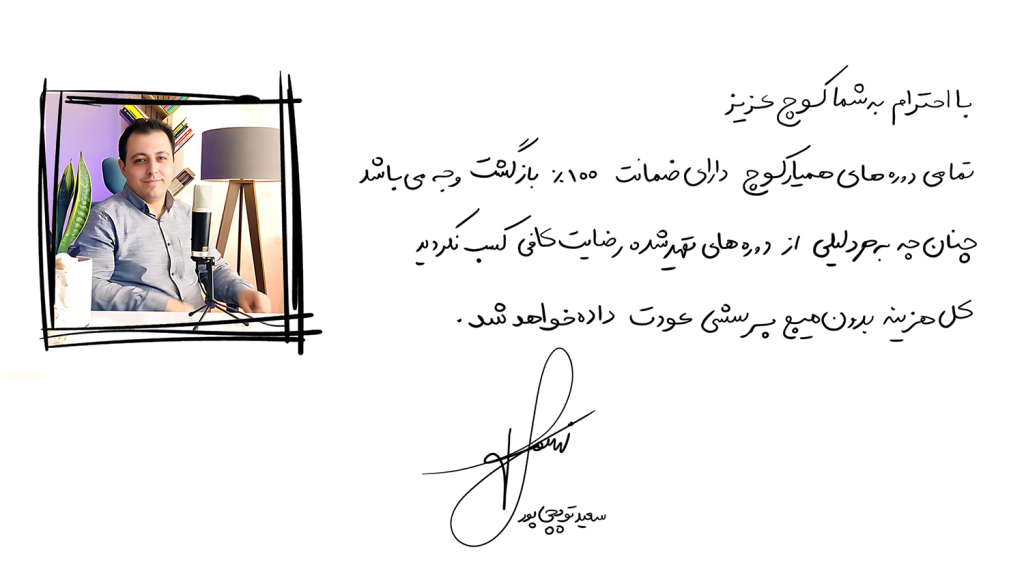 با احترام به شما کوچ عزیز
تمامی دوره های همیارکوچ دارای ضمانت ۱۰۰٪ بازگشت وجه می باشد
چنان چه به هر دلیلی از دوره های تهیه شده رضایت کافی کسب نکردید
کل هزینه بدون هیچ پرسشی عودت داده خواهد شد.
سعید توپچی پور